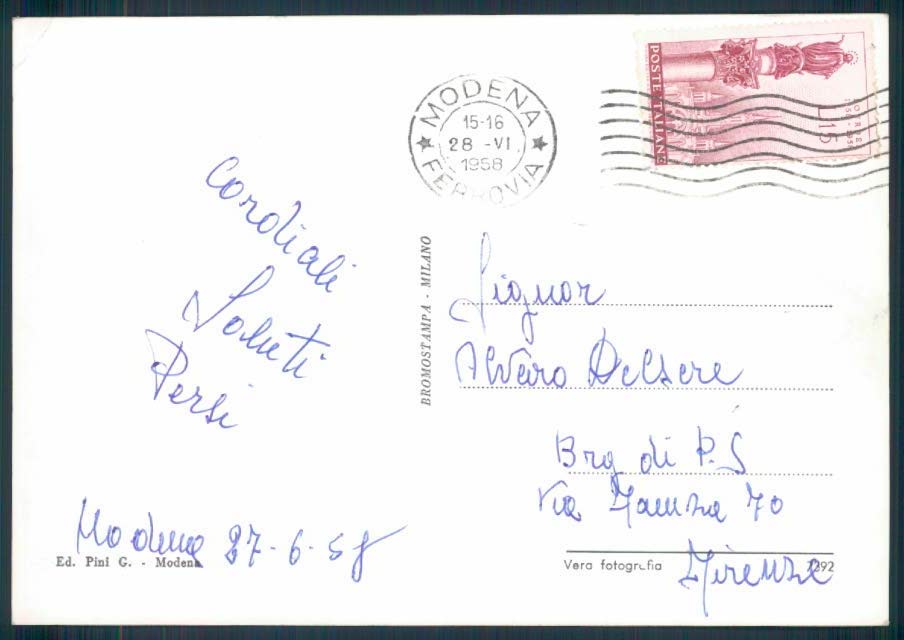 MODENA
15-16
28 -VI
1958
FERROVIA
POSTE ITALIANE
L 15
cordiali
Saluti
Persi
Modena 27-6-58
Ed. Pini G. - Modena
BROMOSTAMPA - MILANO
Signor
Alvaro Delsere
Brg di P.S
Via 70
Firenze
Vera fotografia
7292